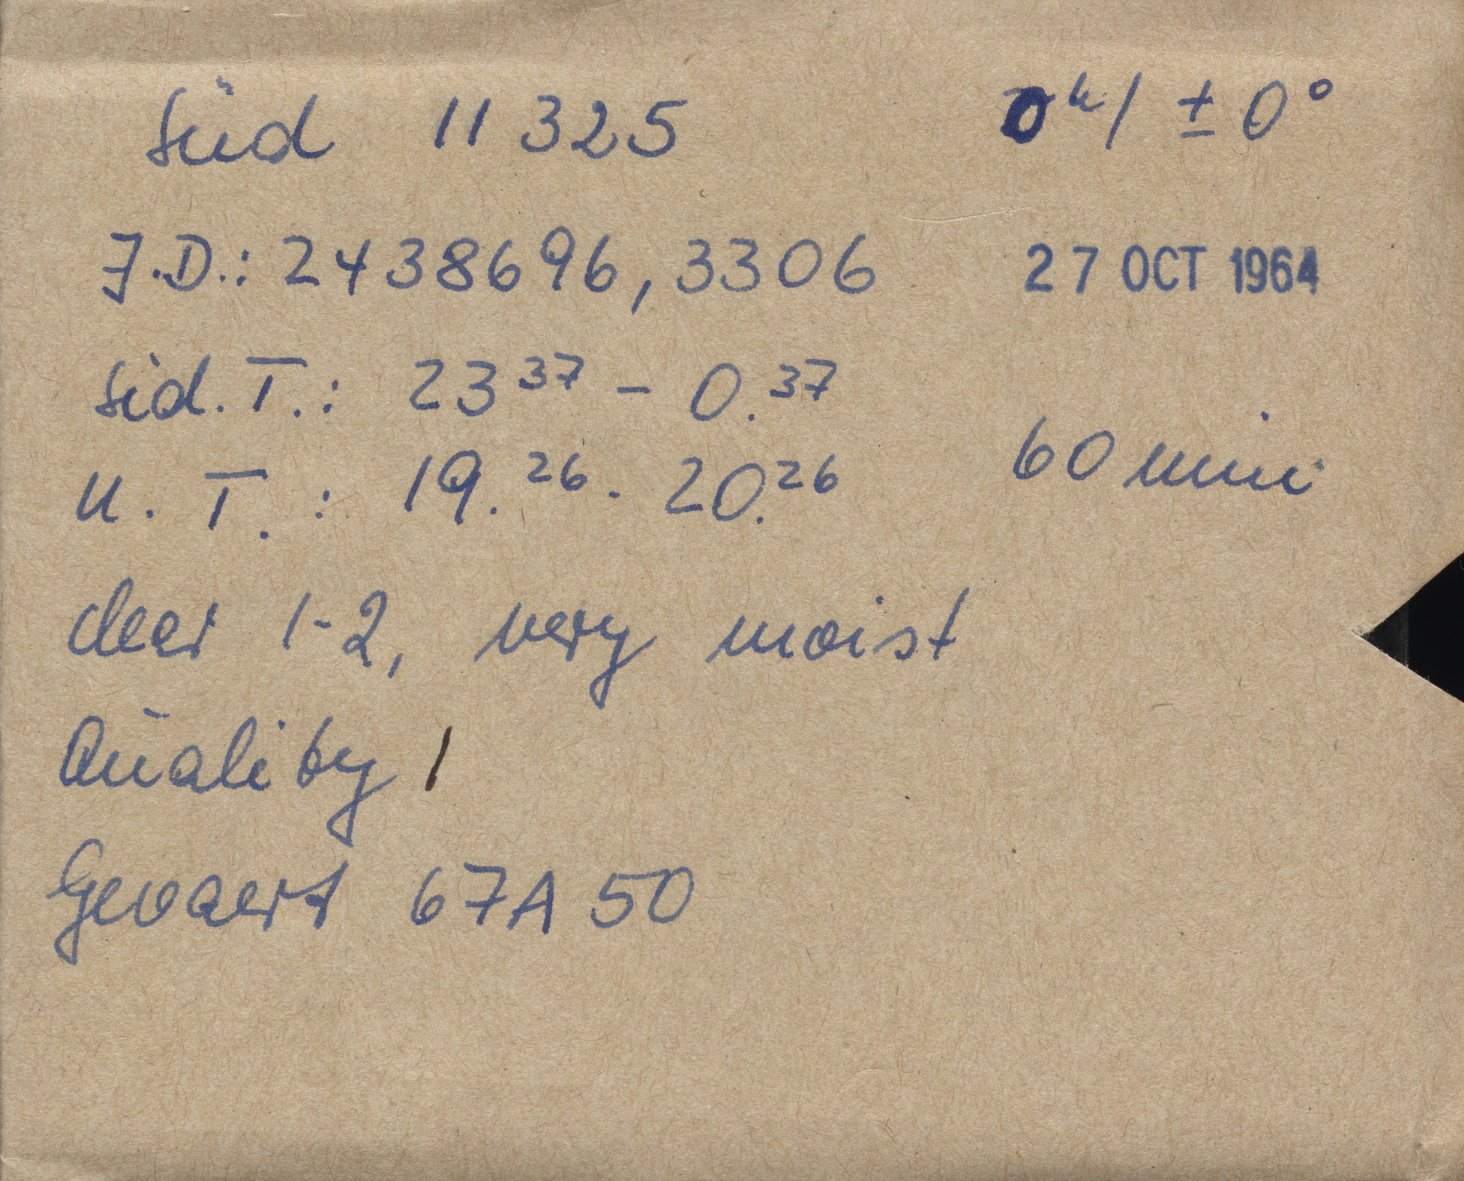 Süd 11325 0ʰ/ ± 0°
J.D.: 2438696,3306 27 OCT 1964
Sid. T.: 23³⁷ - 0.³⁷
U. T.: 19.²⁶ - 20.²⁶ 60 min
clear 1-2, very moist
Quality 1
Gevaert 67A50